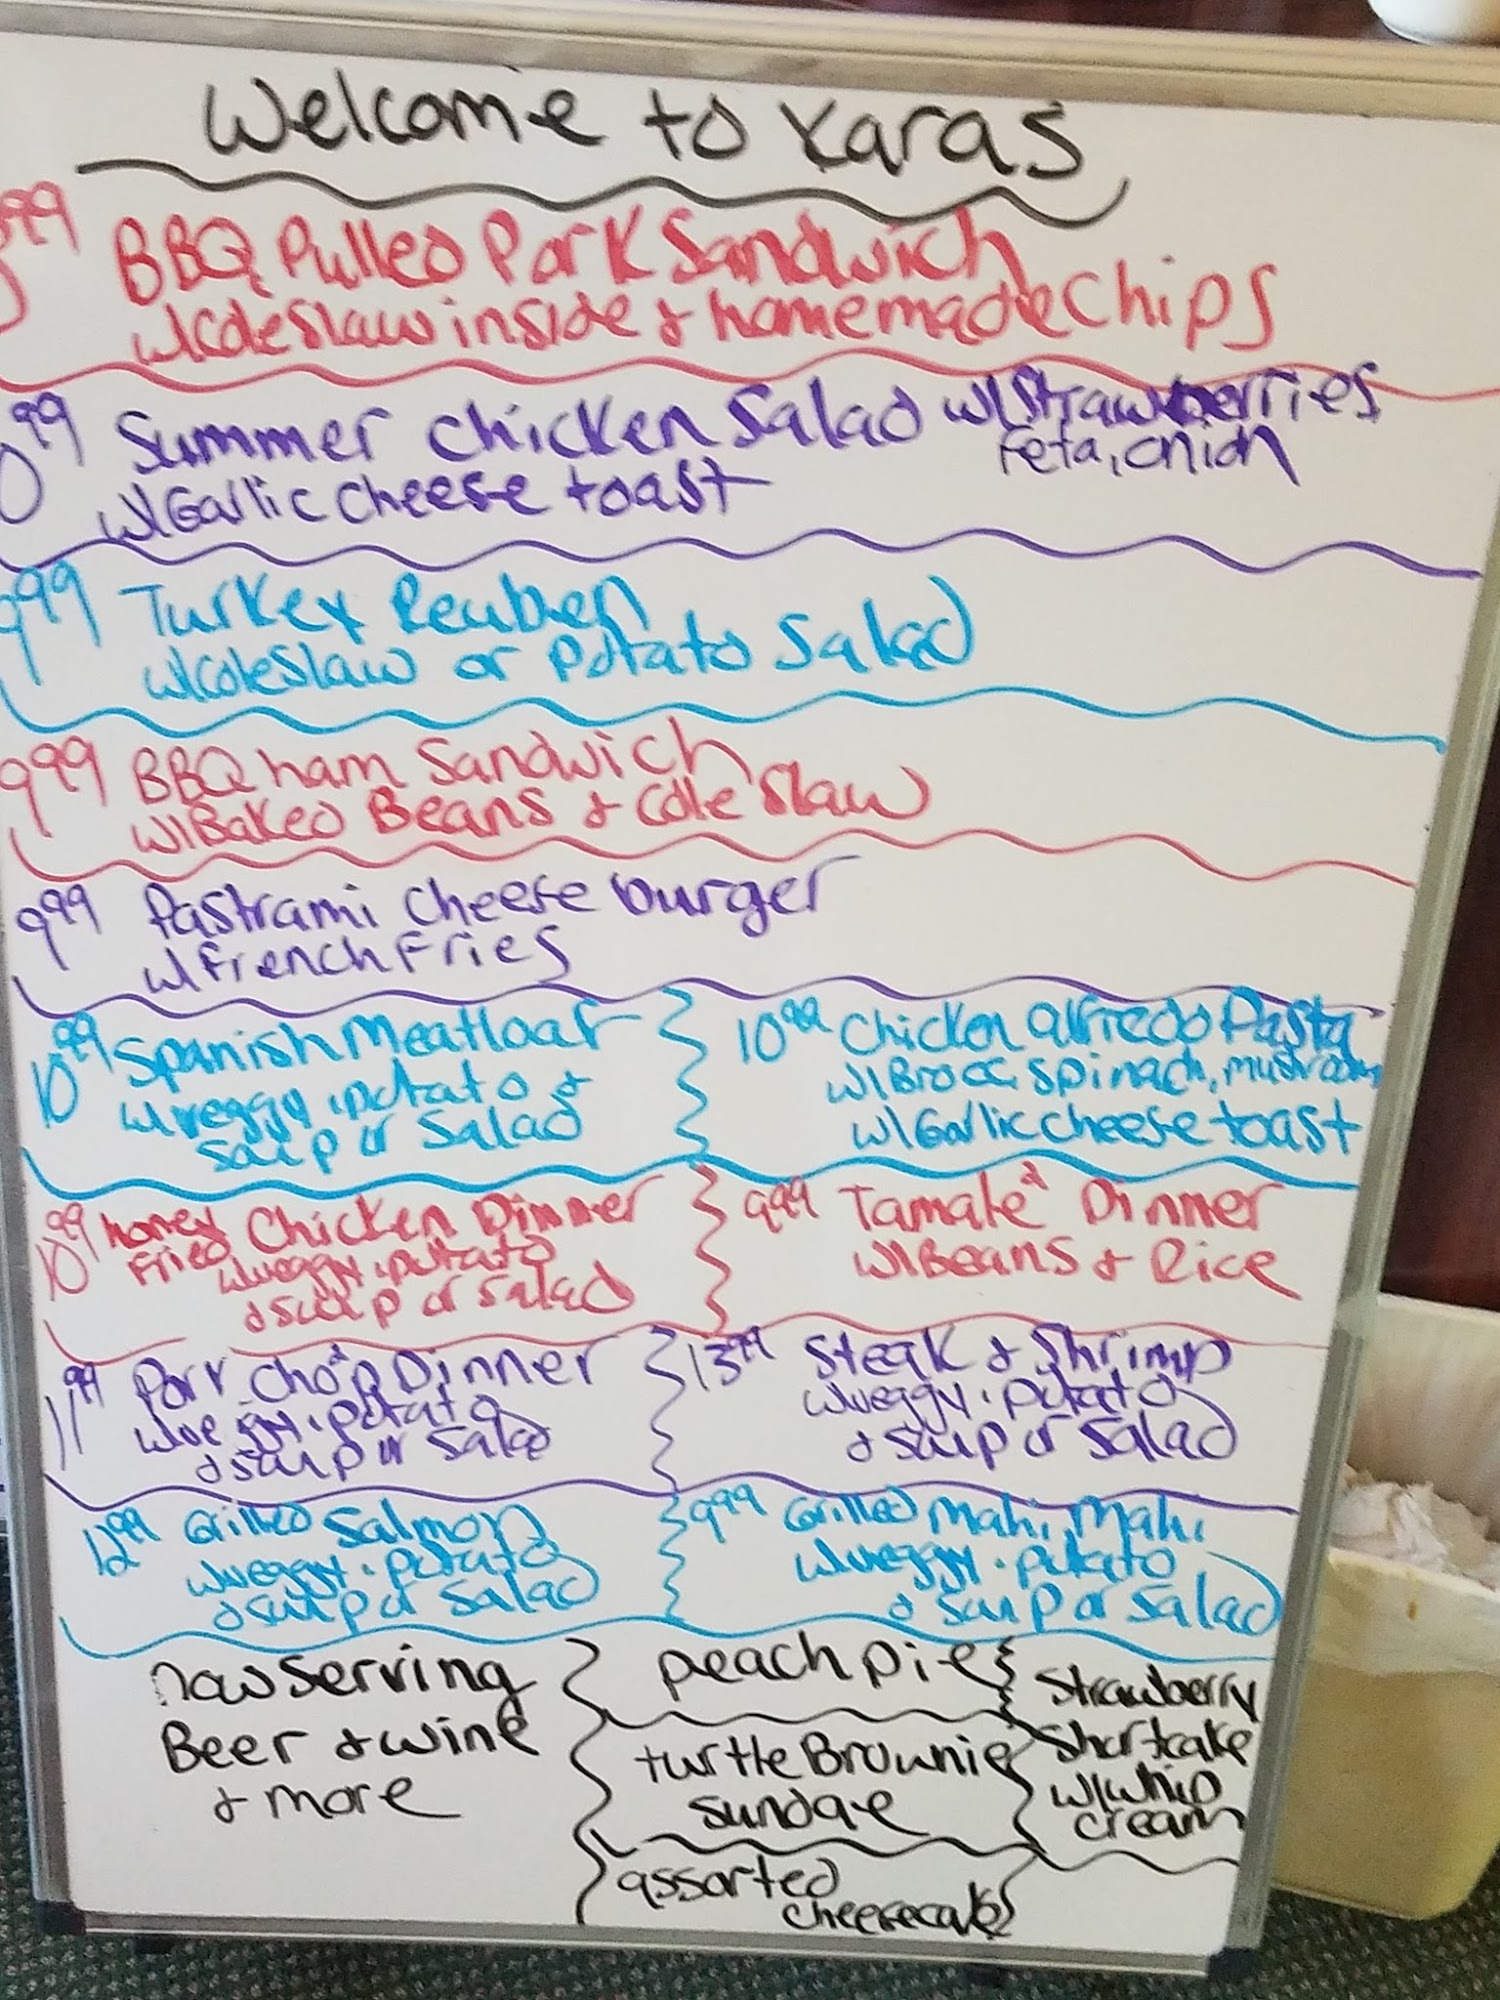 Welcome to Karas
99 BBQ Pulled Pork Sandwich
w/Coleslaw inside & homemade Chips
99 Summer Chicken Salad w/Strawberries
Feta, Onion
w/Garlic Cheese toast
999 Turkey Reuben
w/Coleslaw or Potato Salad
999 BBQ ham Sandwich
w/Baked Beans & Cole Slaw
999 Pastrami Cheese burger
w/french Fries
1099 Spanish Meatloaf
w/veggy . potato &
Soup or Salad
1099 Chicken alfredo Pasta
w/Brocc, Spinach, mushroom
w/Garlic cheese toast
1099 honey Fried Chicken Dinner
w/veggy . potato
& soup or Salad
999 Tamale 2 Dinner
w/Beans & Rice
1199 Pork Chop 2 Dinner
w/veggy . potato
& soup or Salad
1399 Steak & Shrimp
w/veggy . potato
& soup or Salad
1299 Grilled Salmon
w/veggy . potato
& soup or Salad
999 Grilled Mahi, Mahi
w/veggy . potato
& soup or Salad
now Serving
Beer & wine
& more
peach pie
turtle Brownie
Sundae
assorted
cheesecakes
Strawberry
Shortcake
w/whip
cream